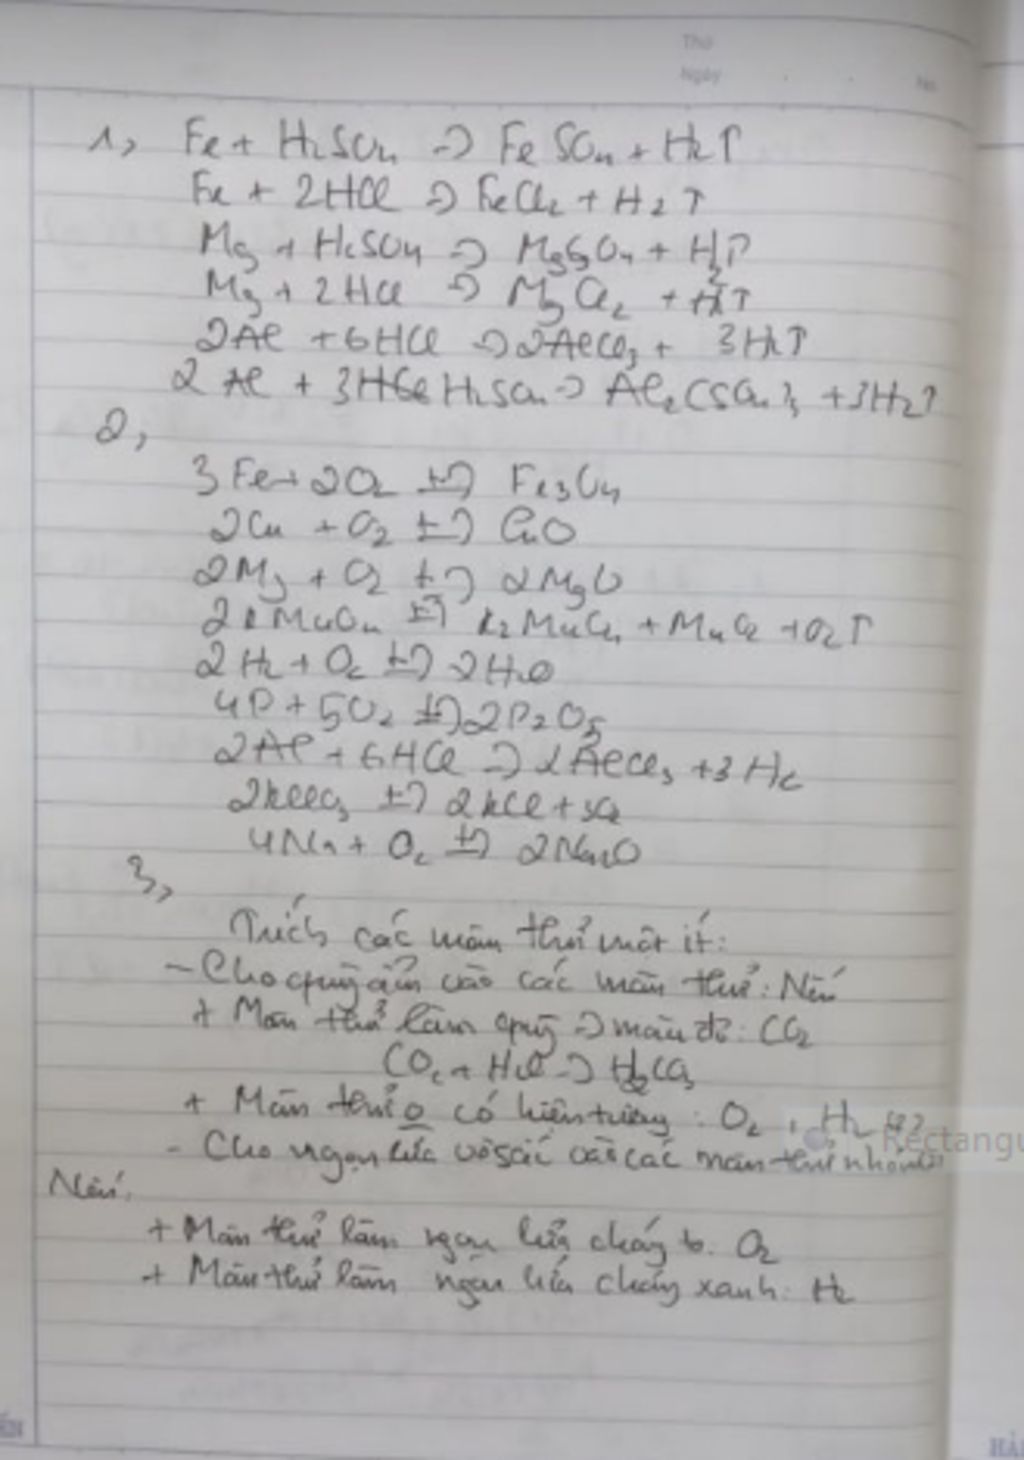 Thứ
Ngày No.
1, Fe + H2SO4 → FeSO4 + H2↑
Fe + 2HCl → FeCl2 + H2↑
Mg + H2SO4 → MgSO4 + H2↑
Mg + 2HCl → MgCl2 + H2↑
2Al + 6HCl → 2AlCl3 + 3H2↑
2Al + 3 H2SO4 → Al2(SO4)3 + 3H2↑
2,
3Fe + 2O2 t→ Fe3O4
2Cu + O2 t→ CuO
2Mg + O2 t→ 2MgO
2KMnO4 t→ K2MnO4 + MnO2 + O2↑
2H2 + O2 t→ 2H2O
4P + 5O2 t→ 2P2O5
2Al + 6HCl → 2AlCl3 + 3H2
2KClO3 t→ 2KCl + 3O2
4Na + O2 t→ 2Na2O
3,
Trích các mẫu thử một ít:
- Cho quỳ ẩm vào các mẫu thử: Nếu
+ Mẫu thử làm quỳ → màu đỏ: CO2
CO2 + H2O → H2CO3
+ Mẫu thử o có hiện tượng: O2, H2
Rectangu
- Cho ngọn lửa vào các mẫu thử nhóm
Nếu:
+ Mẫu thử làm ngọn lửa cháy to: O2
+ Mẫu thử làm ngọn lửa cháy xanh: H2
HẢI